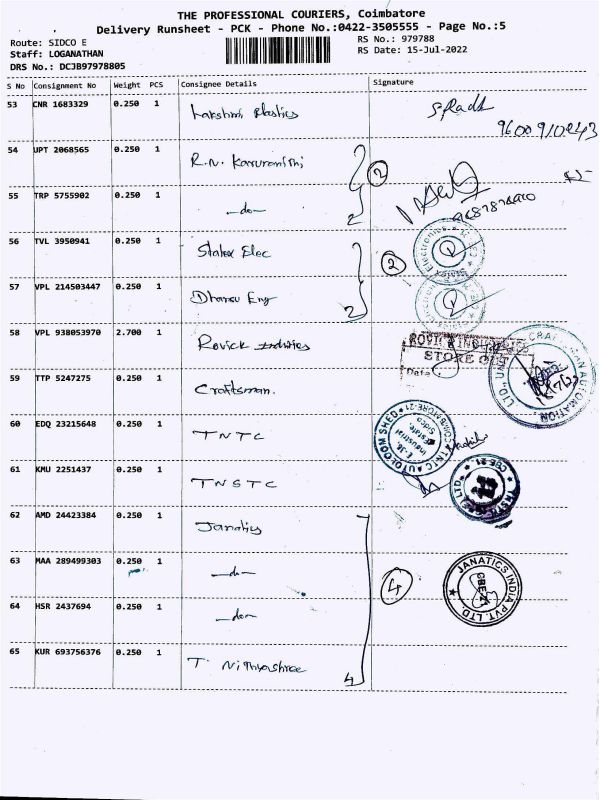 THE PROFESSIONAL COURIERS, Coimbatore
Delivery Runsheet - PCK - Phone No.:0422-3505555 - Page No.:5
Route: SIDCO E
RS No.: 979788
Staff: LOGANATHAN
RS Date: 15-Jul-2022
DRS No.: DCJB97978805
S No Consignment No Weight PCS Consignee Details Signature
53 CNR 1683329 0.250 1 Lakshmi Plastics
54 UPT 2068565 0.250 1 R.N. 2
55 TRP 5755902 0.250 1 —do— 2
56 TVL 3950941 0.250 1 Statex Elec 2
57 VPL 214503447 0.250 1 Dhansu Eng 2
58 VPL 938053970 2.700 1 Rovick
STORE
Date
59 TTP 5247275 0.250 1 Craftsman.
CRAFTSMAN AUTOMATION LTD, UNIT
60 EDQ 23215648 0.250 1 TNTC
TNTC AUTOLOOM SHED COIMBATORE-21
Industrial
Estate
Sidco
61 KMU 2251437 0.250 1 TNSTC
CBE-21
62 AMD 24423384 0.250 1 Janatics
63 MAA 289499303 0.250 1 —do— 4
JANATICS INDIA PVT. LTD.
CBE-21
64 HSR 2437694 0.250 1 —do—
65 KUR 693756376 0.250 1 T. Nithyashree 4